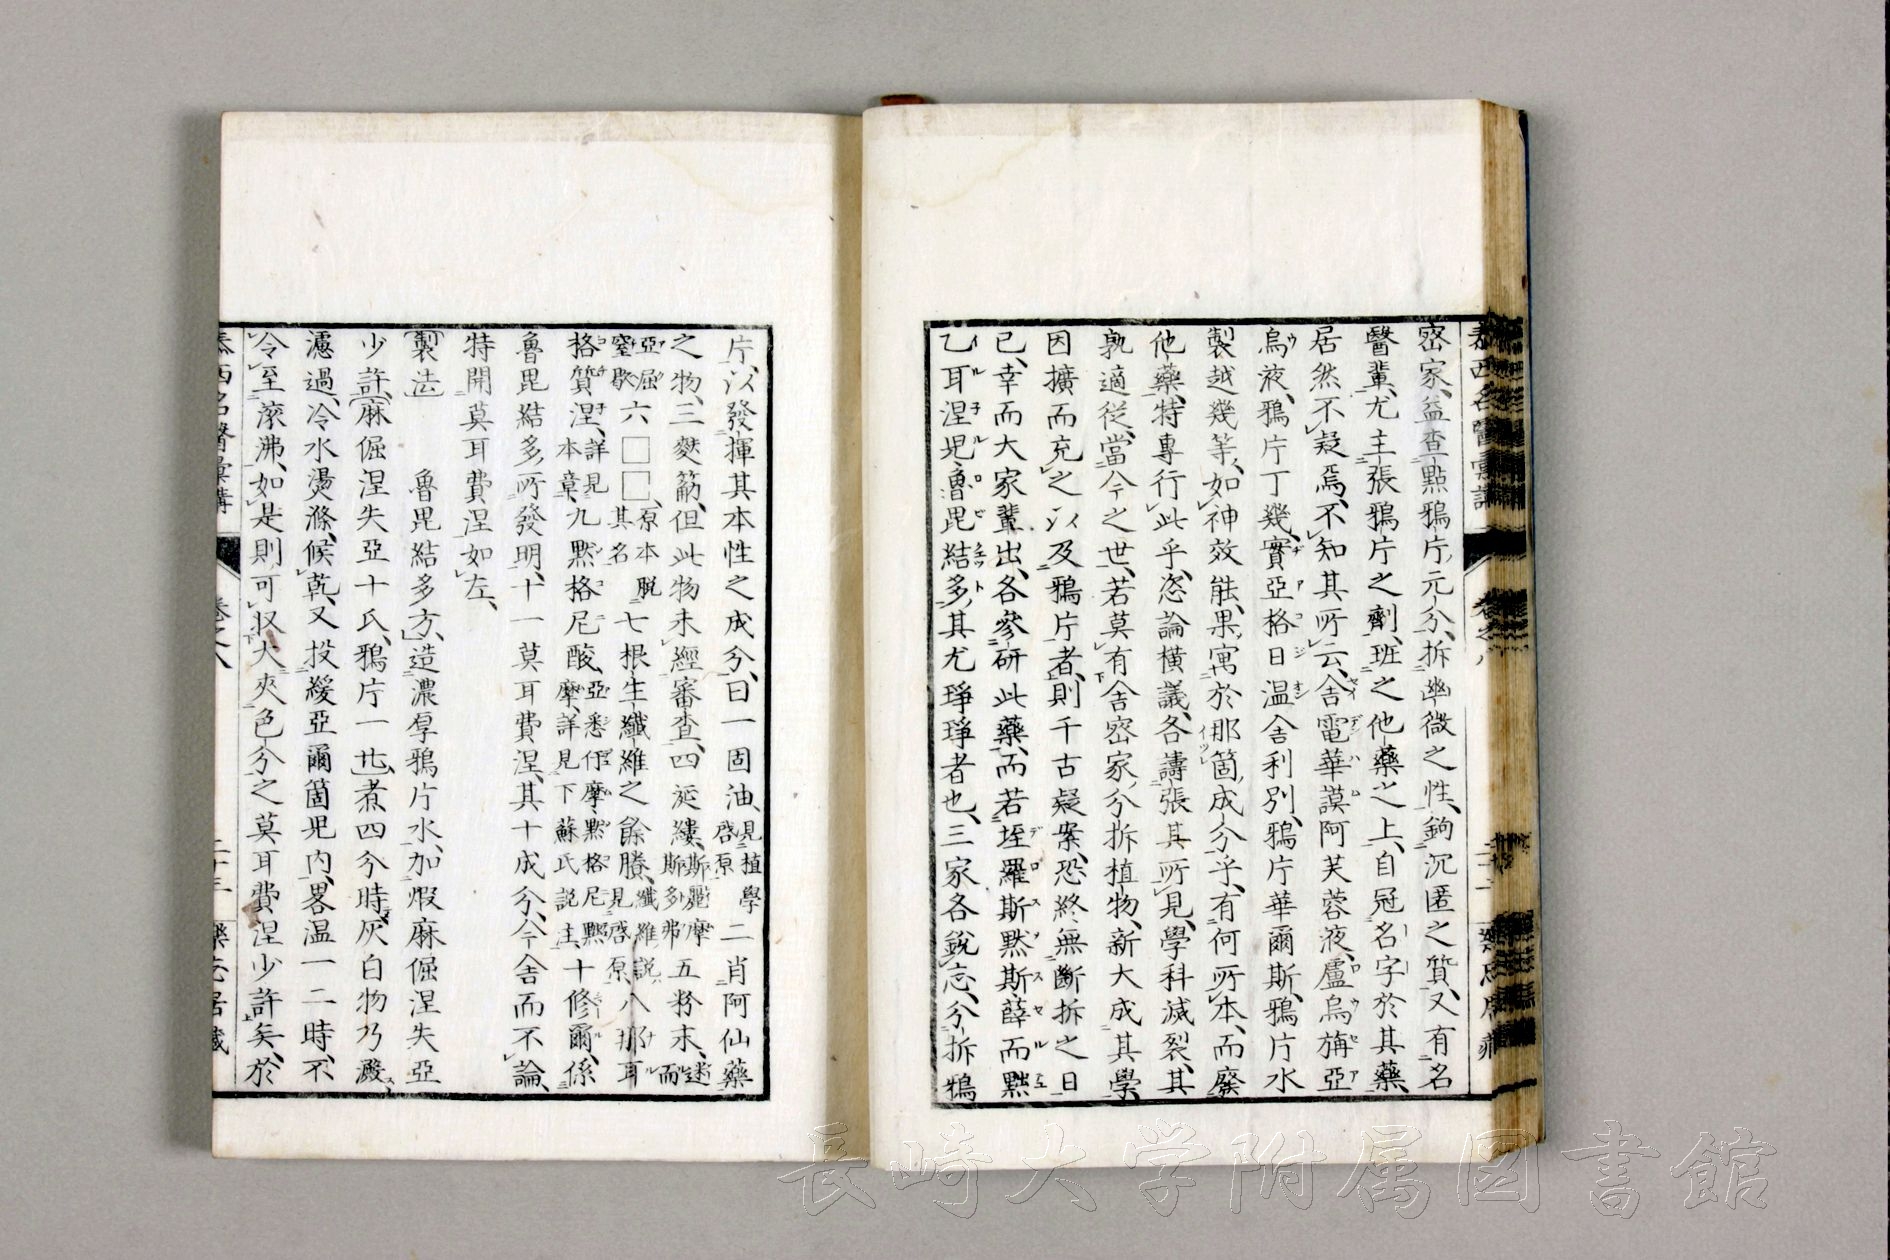 密家、益査點鴉片、元分、拆幽微之性、鉤沉匿之質、又有名
醫輩、尤主張鴉片之劑、班之他藥之上、自冠名字於其藥、
居然不疑焉、不知其所云、舎電華謨阿芙蓉液、盧烏旃亞
烏液、鴉片丁幾、實亞格日温舎利別、鴉片華爾斯、鴉片水
製越幾等、如神效能、果寓於那箇成分乎、有何所本、而廢
他藥、特專行此乎、恣論横議、各譸張其所見、學科滅裂、其
孰適從、當今之世、若莫有舎密家、分拆植物、新大成其學、
因擴而充之以及鴉片者、則千古疑案、恐終無斷拆之日
已、幸而大家輩出、各參研此藥、而若垤羅斯默斯、薛而黜
乙耳涅児、魯毘結多、其尤琤琤者也、三家各鋭志、分拆鴉
泰西名醫彙講 卷之八
片、以發揮其本性之成分、曰一固油、見植學啓原二肖阿仙藥
之物、三麩筋、但此物未經審査、四延縷、斯麗摩斯多弗五粉末、迷而
亞屈窒歇六□□、原本脱其名七根生纖維之餘賸、纖維説見啓原八那耳
格質涅、詳見本章九黙格尼酸、亞悉仵摩黙格尼黙摩、詳見下蘇氏説十修爾、係
魯毘結多所發明、十一莫耳費涅、其十成分、今舎而不論、
特開莫耳費涅如左、
製法 魯毘結多方、造濃厚鴉片水、加煆麻倔涅失亞
少許、麻倔涅失亞十氏、鴉片一卄煮四分時、灰白物乃澱
濾過、冷水燙滌、候乾、又投緩亞爾箇児内、畧温一二時、不
令至滚沸、如是則可収大夾色分之莫耳費涅少許矣、於
泰西名醫彙講 卷之八 二十三